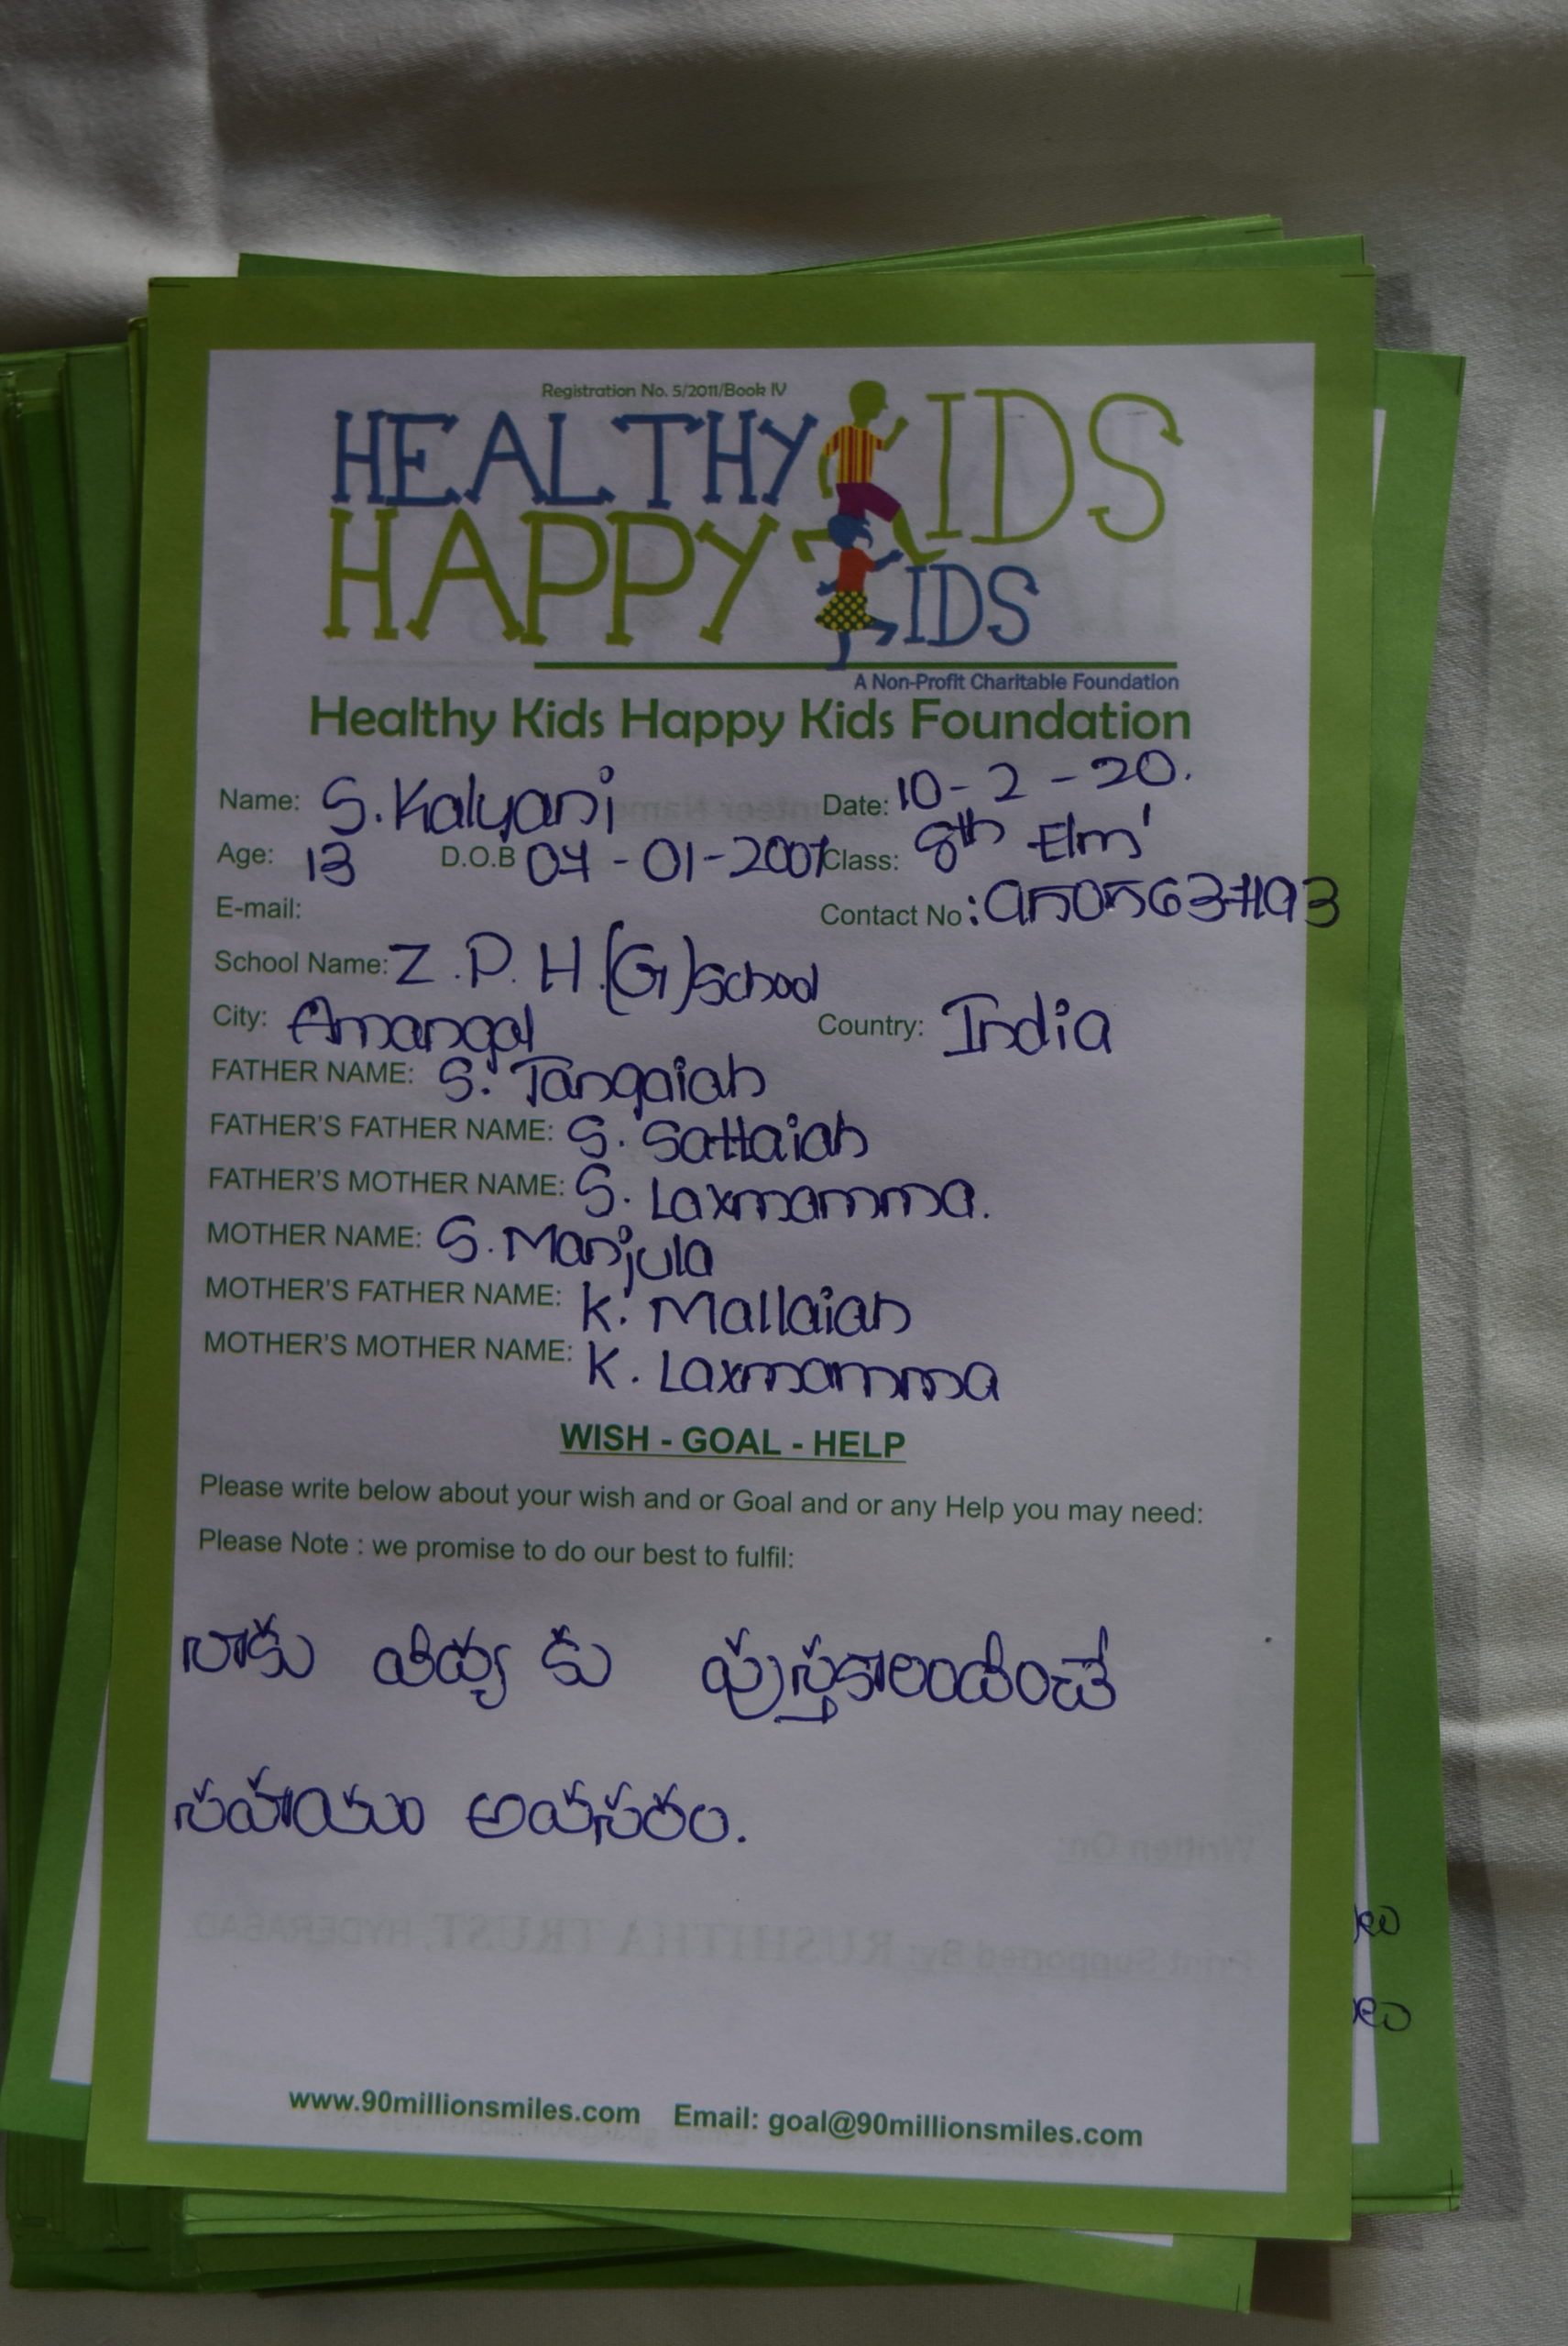 Registration No. 5/2011/Book IV
HEALTHY KIDS
HAPPY KIDS
A Non-Profit Charitable Foundation
Healthy Kids Happy Kids Foundation
Name: S. Kalyani Date: 10-2-20.
Age: 13 D.O.B 04-01-2007 Class: 8th E/m'
E-mail: Contact No:
School Name: Z.P.H.(G) School
City: Amangal Country: India
FATHER NAME: S. Tangaiah
FATHER'S FATHER NAME: S. Sattaiah
FATHER'S MOTHER NAME: S. Laxmamma.
MOTHER NAME: S. Manjula
MOTHER'S FATHER NAME: K. Mallaiah
MOTHER'S MOTHER NAME: K. Laxmamma
WISH - GOAL - HELP
Please write below about your wish and or Goal and or any Help you may need:
Please Note : we promise to do our best to fulfil:
నాకు విద్య కు పుస్తకాలందించే
సహాయం అవసరం.
www.90millionsmiles.com Email: goal@90millionsmiles.com